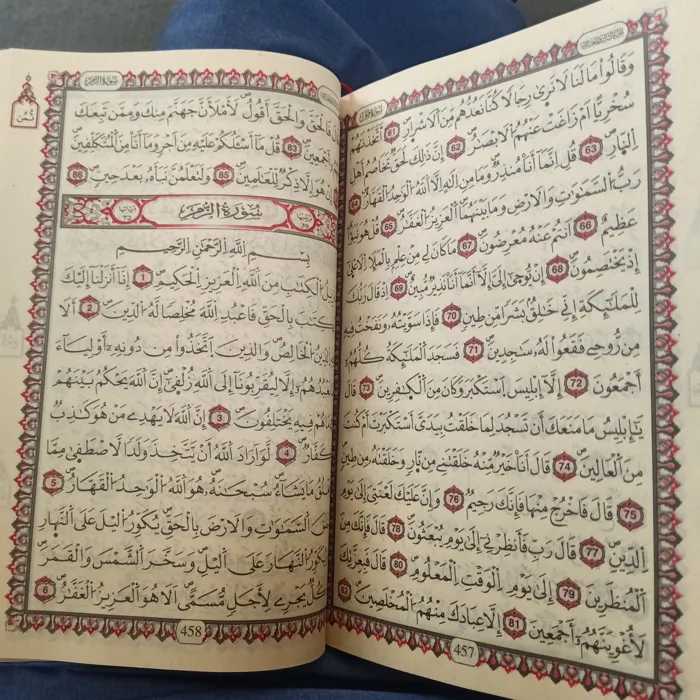 وَقَالُوا مَا لَنَا لَا نَرَىٰ رِجَالًا كُنَّا نَعُدُّهُم مِّنَ الَاشْرَارِ 61 أَتَّخَذْنَٰهُمْ
سُخْرِيًّا أَمْ زَاغَتْ عَنْهُمُ الَابْصَٰرُ 62 إِنَّ ذَٰلِكَ لَحَقٌّ تَخَاصُمُ أَهْلِ
النّارِ 63 قُلِ انَّمَا أَنَا مُنذِرٌ وَمَا مِنِ الَٰهٍ اِلَّا اللَّهُ الْوَٰحِدُ الْقَهَّارُ 64
رَبُّ السَّمَٰوَٰتِ وَالَارْضِ وَمَا بَيْنَهُمَا الْعَزِيزُ الْغَفَّٰرُ 65 قُلْ هُوَ نَبَؤٌا
عَظِيمٌ 66 اَنتُمْ عَنْهُ مُعْرِضُونَ 67 مَا كَانَ لِي مِنْ عِلْمٍ بِالْمَلَإِ الَاعْلَىٰ
إِذْ يَخْتَصِمُونَ 68 إِنْ يُّوحَىٰ إِلَيَّ إِلَّا أَنَّمَا أَنَا نَذِيرٌ مُّبِينٌ 69 اِذْ قَالَ رَبُّكَ
لِلْمَلَٰٓئِكَةِ إِنِّي خَٰلِقٌ بَشَرًا مِّن طِينٍ 70 فَإِذَا سَوَّيْتُهُ وَنَفَخْتُ فِيهِ
مِن رُّوحِي فَقَعُوا لَهُ سَٰجِدِينَ 71 فَسَجَدَ الْمَلَٰٓئِكَةُ كُلُّهُمْ
أَجْمَعُونَ 72 إِلَّا إِبْلِيسَ اَسْتَكْبَرَ وَكَانَ مِنَ الْكَٰفِرِينَ 73 قَالَ
يَٰٓإِبْلِيسُ مَا مَنَعَكَ أَن تَسْجُدَ لِمَا خَلَقْتُ بِيَدَيَّ أَسْتَكْبَرْتَ أَمْ كُنتَ
مِنَ الْعَالِينَ 74 قَالَ أَنَا خَيْرٌ مِّنْهُ خَلَقْتَنِي مِن نَّارٍ وَخَلَقْتَهُ مِن طِينٍ
75 قَالَ فَاخْرُجْ مِنْهَا فَإِنَّكَ رَجِيمٌ 76 وَإِنَّ عَلَيْكَ لَعْنَتِيَ إِلَىٰ يَوْمِ
الدِّينِ 77 قَالَ رَبِّ فَأَنظِرْنِي إِلَىٰ يَوْمِ يُبْعَثُونَ 78 قَالَ فَإِنَّكَ مِنَ
الْمُنظَرِينَ 79 إِلَىٰ يَوْمِ الْوَقْتِ الْمَعْلُومِ 80 قَالَ فَبِعِزَّتِكَ
لَأُغْوِيَنَّهُمُ أَجْمَعِينَ 81 إِلَّا عِبَادَكَ مِنْهُمُ الْمُخْلَصِينَ 82
457
سُورَةُ الزُّمَر
ثُمُن
فَالْحَقَّ وَالْحَقَّ أَقُولُ لَأَمْلَأَنَّ جَهَنَّمَ مِنكَ وَمِمَّن تَبِعَكَ
أَجْمَعِينَ 83 قُلْ مَا أَسْـَٔلُكُمْ عَلَيْهِ مِنَ اَجْرٍ وَمَا أَنَا مِنَ الْمُتَكَلِّفِينَ
84 إِنْ هُوَ إِلَّا ذِكْرٌ لِّلْعَٰلَمِينَ 85 وَلَتَعْلَمُنَّ نَبَأَهُ بَعْدَ حِينٍ 86
سُورَةُ الزُّمَر
بِسْمِ اللَّهِ الرَّحْمَٰنِ الرَّحِيمِ
تَنزِيلُ الْكِتَٰبِ مِنَ اللَّهِ الْعَزِيزِ الْحَكِيمِ 1 إِنَّا أَنزَلْنَا إِلَيْكَ
الْكِتَٰبَ بِالْحَقِّ فَاعْبُدِ اللَّهَ مُخْلِصًا لَّهُ الدِّينَ 2 أَلَا
لِلهِ الدِّينُ الْخَالِصُ وَالَّذِينَ اَتَّخَذُوا مِن دُونِهِ أَوْلِيَاءَ
مَا نَعْبُدُهُمُ إِلَّا لِيُقَرِّبُونَا إِلَى اللَّهِ زُلْفَىٰ إِنَّ اللَّهَ يَحْكُمُ بَيْنَهُمْ
فِي مَا هُمْ فِيهِ يَخْتَلِفُونَ 3 إِنَّ اللَّهَ لَا يَهْدِي مَنْ هُوَ كَٰذِبٌ
كَفَّارٌ 4 لَّوَ اَرَادَ اللَّهُ أَنْ يَّتَّخِذَ وَلَدًا لَّاصْطَفَىٰ مِمَّا
يَخْلُقُ مَا يَشَاءُ سُبْحَٰنَهُ هُوَ اللَّهُ الْوَٰحِدُ الْقَهَّارُ 5
خَلَقَ السَّمَٰوَٰتِ وَالَارْضَ بِالْحَقِّ يُكَوِّرُ اُلَّيْلَ عَلَى النَّهَارِ
وَيُكَوِّرُ النَّهَارَ عَلَى اَلَّيْلِ وَسَخَّرَ الشَّمْسَ وَالْقَمَرَ
كُلٌّ يَجْرِي لِأَجَلٍ مُّسَمًّى اَلَا هُوَ الْعَزِيزُ الْغَفَّٰرُ 6
458